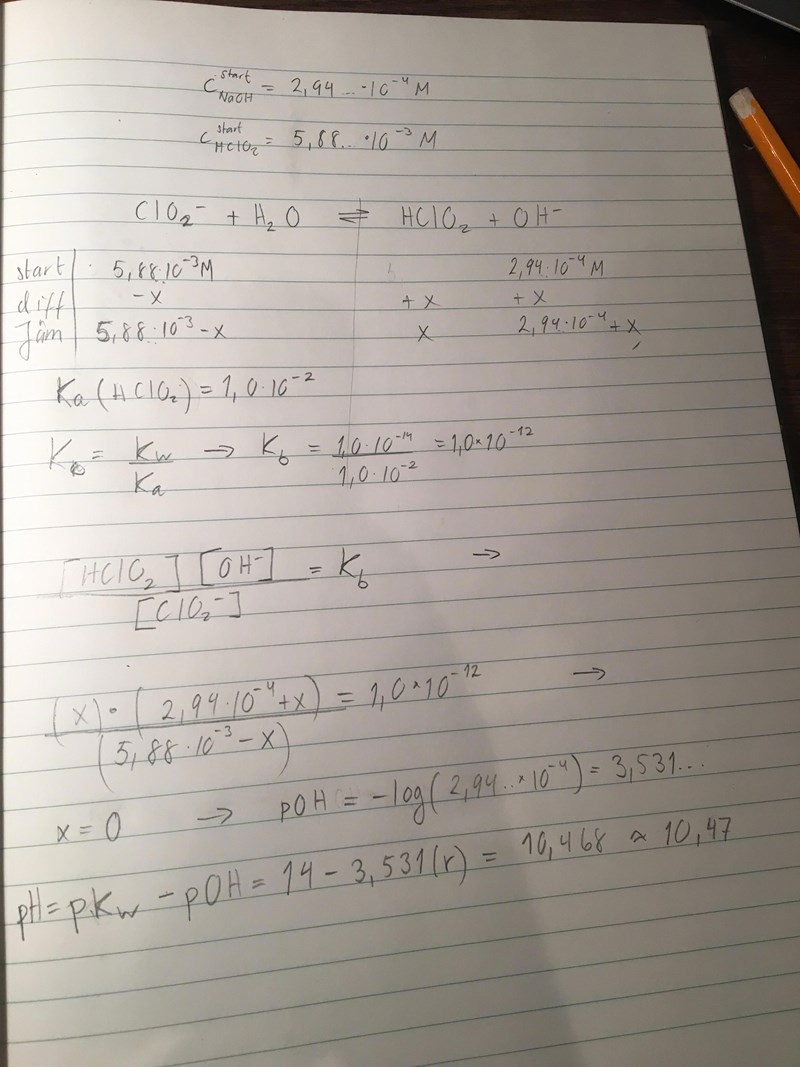 C start NaOH = 2,94... · 10⁻⁴ M
C start HClO₂ = 5,88.. · 10⁻³ M
ClO₂⁻ + H₂O ⇌ HClO₂ + OH⁻
start 5,88·10⁻³M 2,94·10⁻⁴ M
diff -x +x +x
Jäm 5,88·10⁻³-x x 2,94·10⁻⁴+x
Ka (HClO₂) = 1,0·10⁻²
K = Kw/Ka → Kb = 1,0·10⁻¹⁴/1,0·10⁻² = 1,0×10⁻¹²
[HClO₂][OH⁻]/[ClO₂⁻] = Kb →
(x)·(2,94·10⁻⁴+x)/(5,88·10⁻³-x) = 1,0×10⁻¹² →
x = 0 → pOH = -log(2,94..×10⁻⁴) = 3,531...
pH = pKw - pOH = 14 - 3,531(r) = 10,468 ≈ 10,47